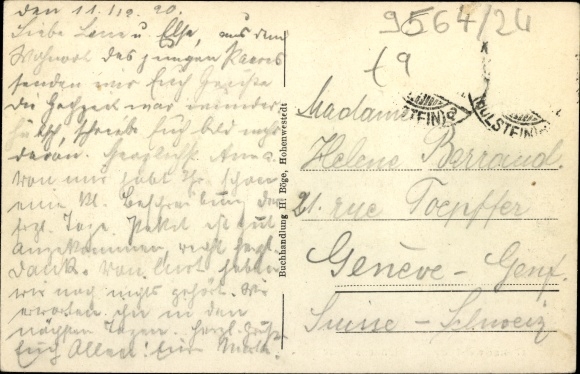 den 11. 20.
Liebe Lene u. Else, aus dem
Wohnort des jungen Paares
senden wir Euch Grüsse
die Hochzeit war
hübsch, schreibe Euch bald mehr
davon. Herzlichst Anna.
Von mir habt Ihr schon
eine kl. Beschreibung der
Tage. Paket ist gut
angekommen, recht herzl.
Dank. Von haben
wir noch nichts gehört. Wir
erwarten ihn in den
nächsten Tagen. Herzl. Grüße
Euch Allen! Eure
Buchhandlung H. Böge, Hohenwestedt
9564/24
Madame
HOLSTEIN
Helene Barraud
21. rue Toepffer
Genève - Genf.
Suisse - Schweiz